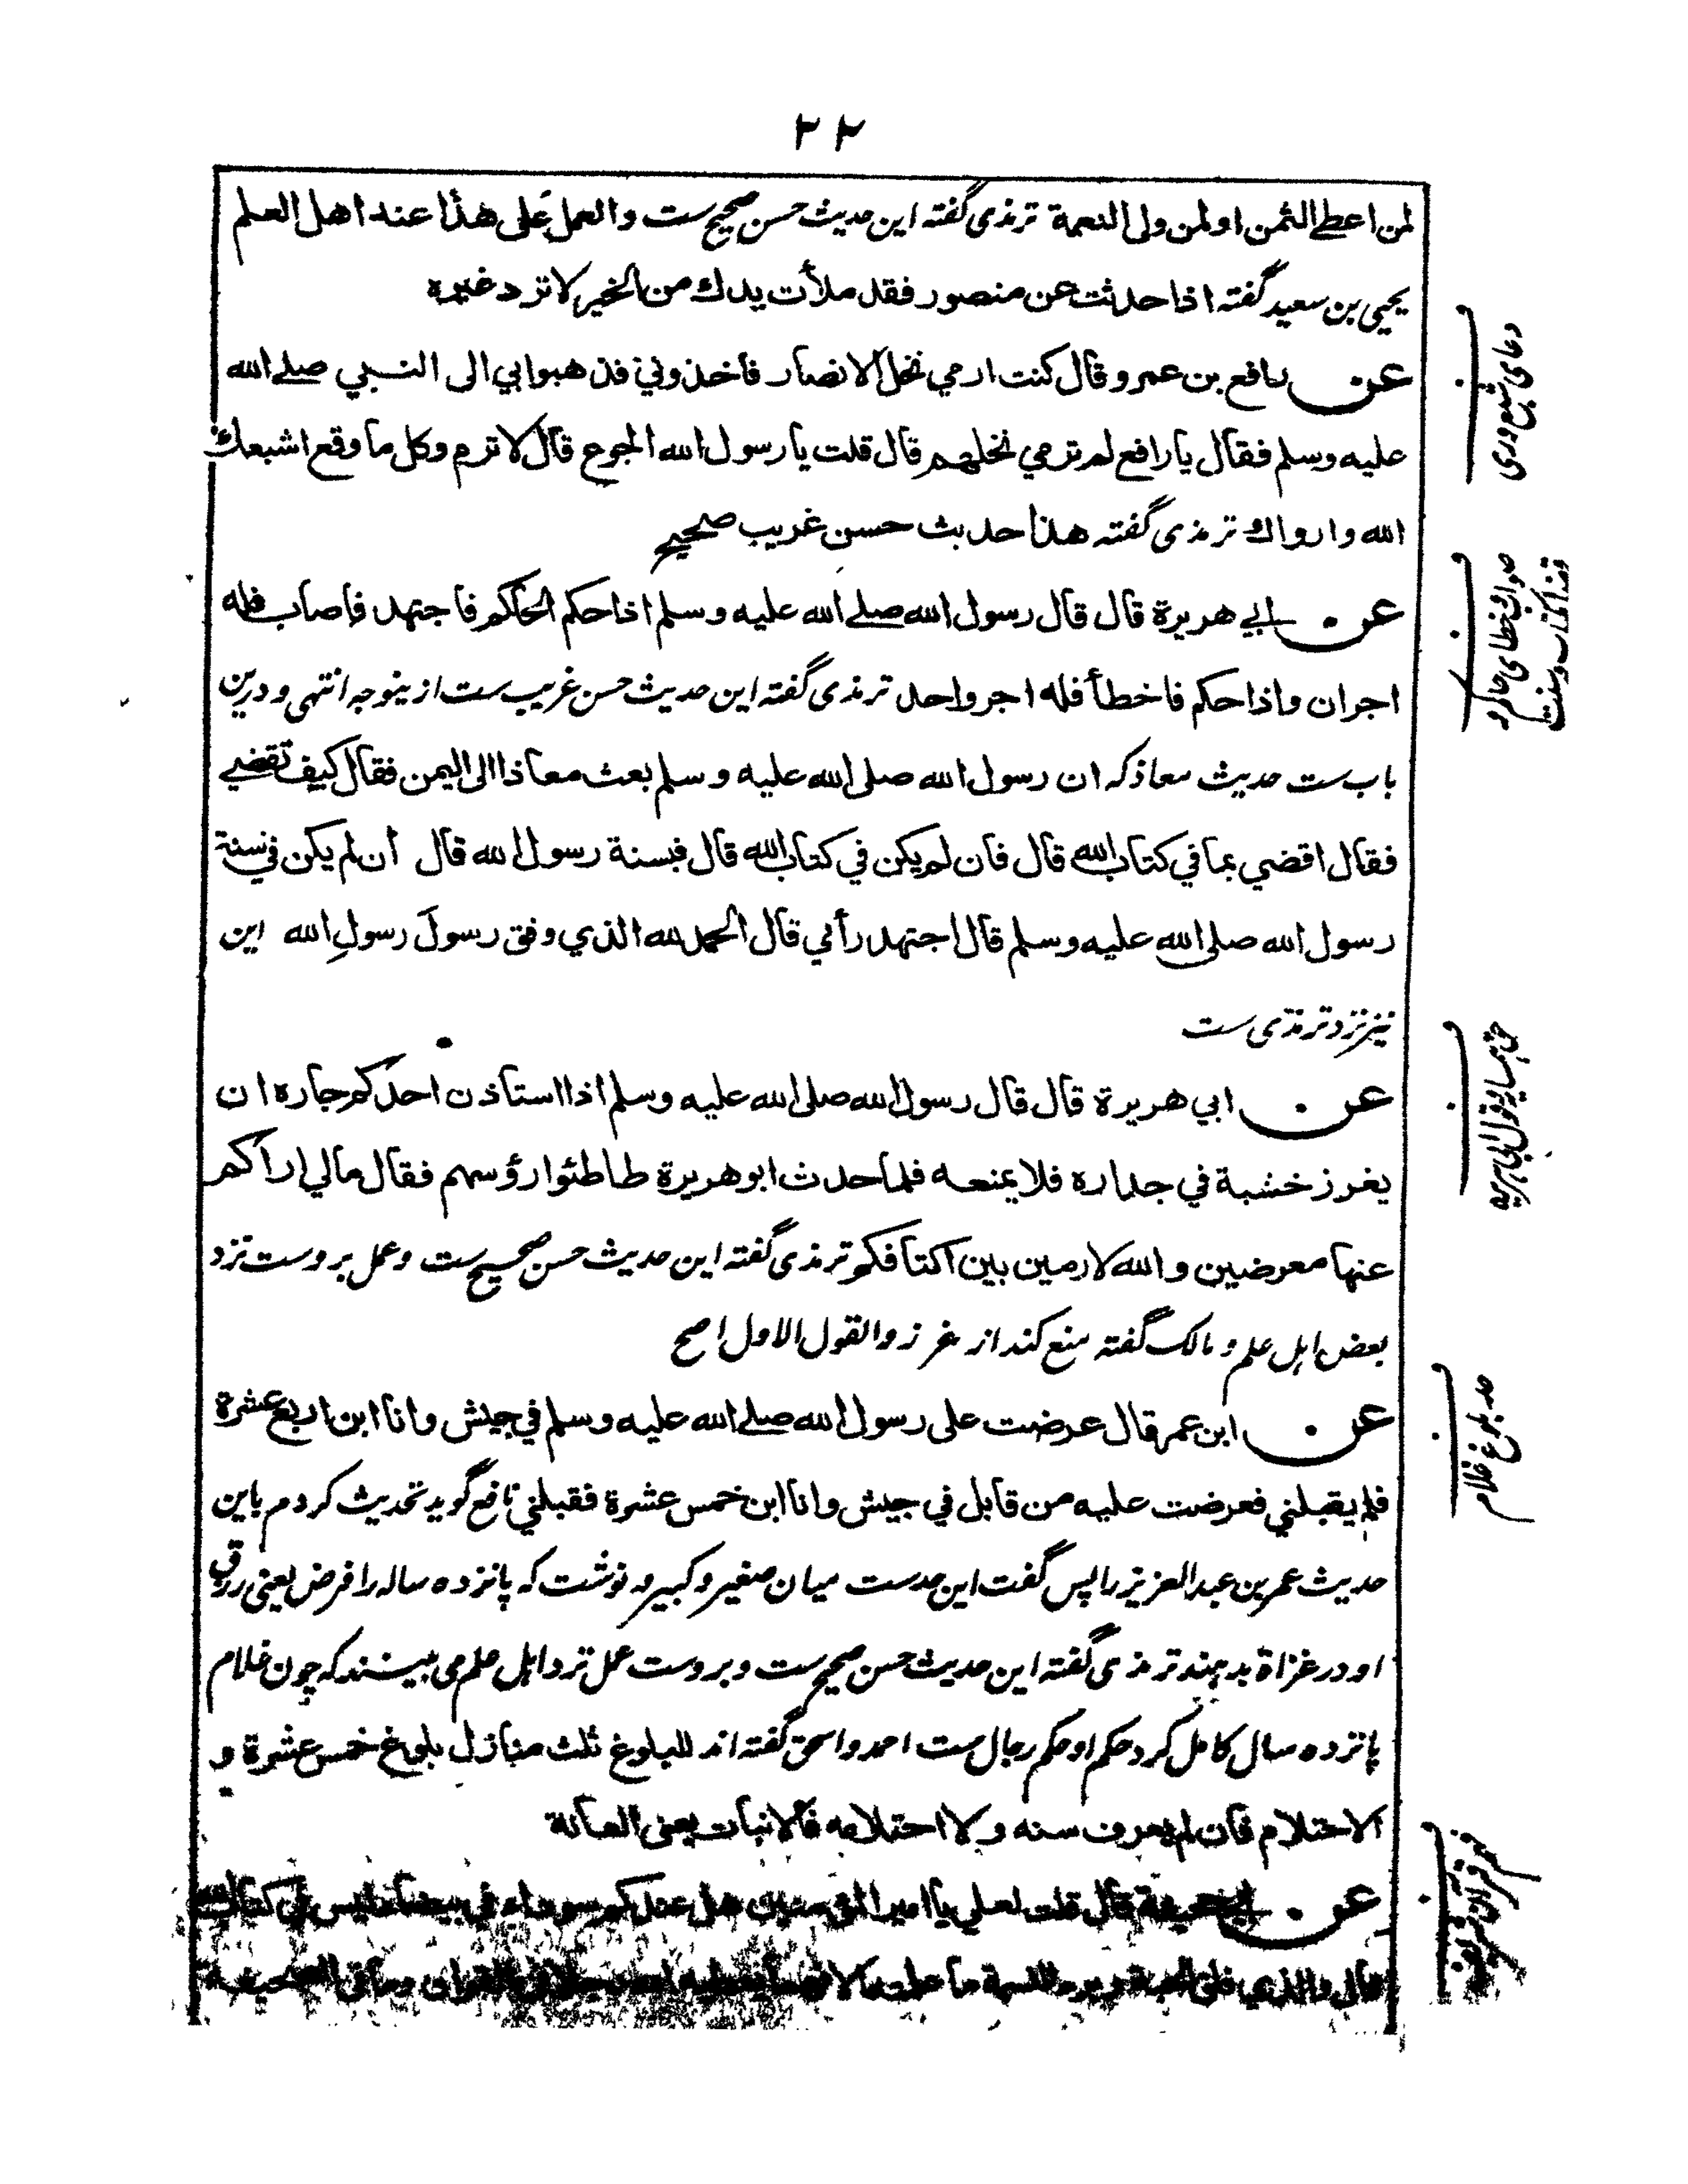 ۲۲
لمن اعطے الثمن اولمن ولی النعمة ترمذی گفته این حدیث حسن صحیح ست والعمل علی هذا عند اهل العلم
یحیی بن سعید گفته اذا حدثت عن منصور فقد ملأت یدك من الخیر لا ترد غیره
عن رافع بن عمرو قال کنت ارمي نخل الانصار فاخذوني فذهبوابي الی النبي صلے الله
علیه وسلم فقال یا رافع لم ترمي نخلهم قال قلت یا رسول الله الجوع قال لا ترم وکل ما وقع اشبعك
الله وارواك ترمذی گفته هذا حدیث حسن غریب صحیح
عن ابي هریرة قال قال رسول الله صلے الله علیه وسلم اذا حکم الحاکم فاجتهد فاصاب فله
اجران واذا حکم فاخطأ فله اجر واحد ترمذی گفته این حدیث حسن غریب ست ازینوجه انتهی ودرین
باب ست حدیث معاذ که ان رسول الله صلی الله علیه وسلم بعث معاذا الی الیمن فقال کیف تقضے
فقال اقضي بما في کتاب الله قال فان لم یکن في کتاب الله قال فبسنة رسول الله قال ان لم یکن في سنة
رسول الله صلی الله علیه وسلم قال اجتهد رأیي قال الحمد لله الذي وفق رسولَ رسولِ الله این
نیز نزد ترمذی ست
عن ابي هریرة قال قال رسول الله صلی الله علیه وسلم اذا استاذن احدکم جاره ان
یغرز خشبة في جداره فلا یمنعه فلما حدث ابو هریرة طاطئوا رؤسهم فقال مالي اراکم
عنها معرضین والله لارمین بین اکتافکم ترمذی گفته این حدیث حسن صحیح ست وعمل بروست نزد
بعض اهل علم و مالک گفته منع کند از غرز والقول الاول اصح
عن ابن عمر قال عرضت علی رسول الله صلے الله علیه وسلم في جیش وانا ابن اربع عشرة
فلم یقبلني فعرضت علیه من قابل في جیش وانا ابن خمس عشرة فقبلني نافع گوید تحدیث کردم باین
حدیث عمر بن عبد العزیز را پس گفت این حدست میان صغیر وکبیر و نوشت که پانزده ساله را فرض یعنی رزق
او در غزاة بدهند ترمذی گفته این حدیث حسن صحیح ست وبروست عمل نزد اهل علم می بینند که چون غلام
پانزده سال کامل کرد حکم او حکم رجال ست احمد واسحق گفته اند للبلوغ ثلث منازل بلوغ خمس عشرة و
الاحتلام فان لم یعرف سنه ولا احتلامه فالانبات یعنی العانة
عن ابي جحیفة قال قلت لعلي یا امیر المؤمنین هل عندکم سوداء في بیضاء لیس في کتاب الله
قال والذي فلق الحبة وبرء النسمة ما علمته الا فهما یعطیه الله رجلا في القران وما في الصحیفة
دعای شبع وری
صواب وخطای حاکم در
قضا بکتاب وسنت
حق همسایه وقول ابی هریره
حد بلوغ غلام